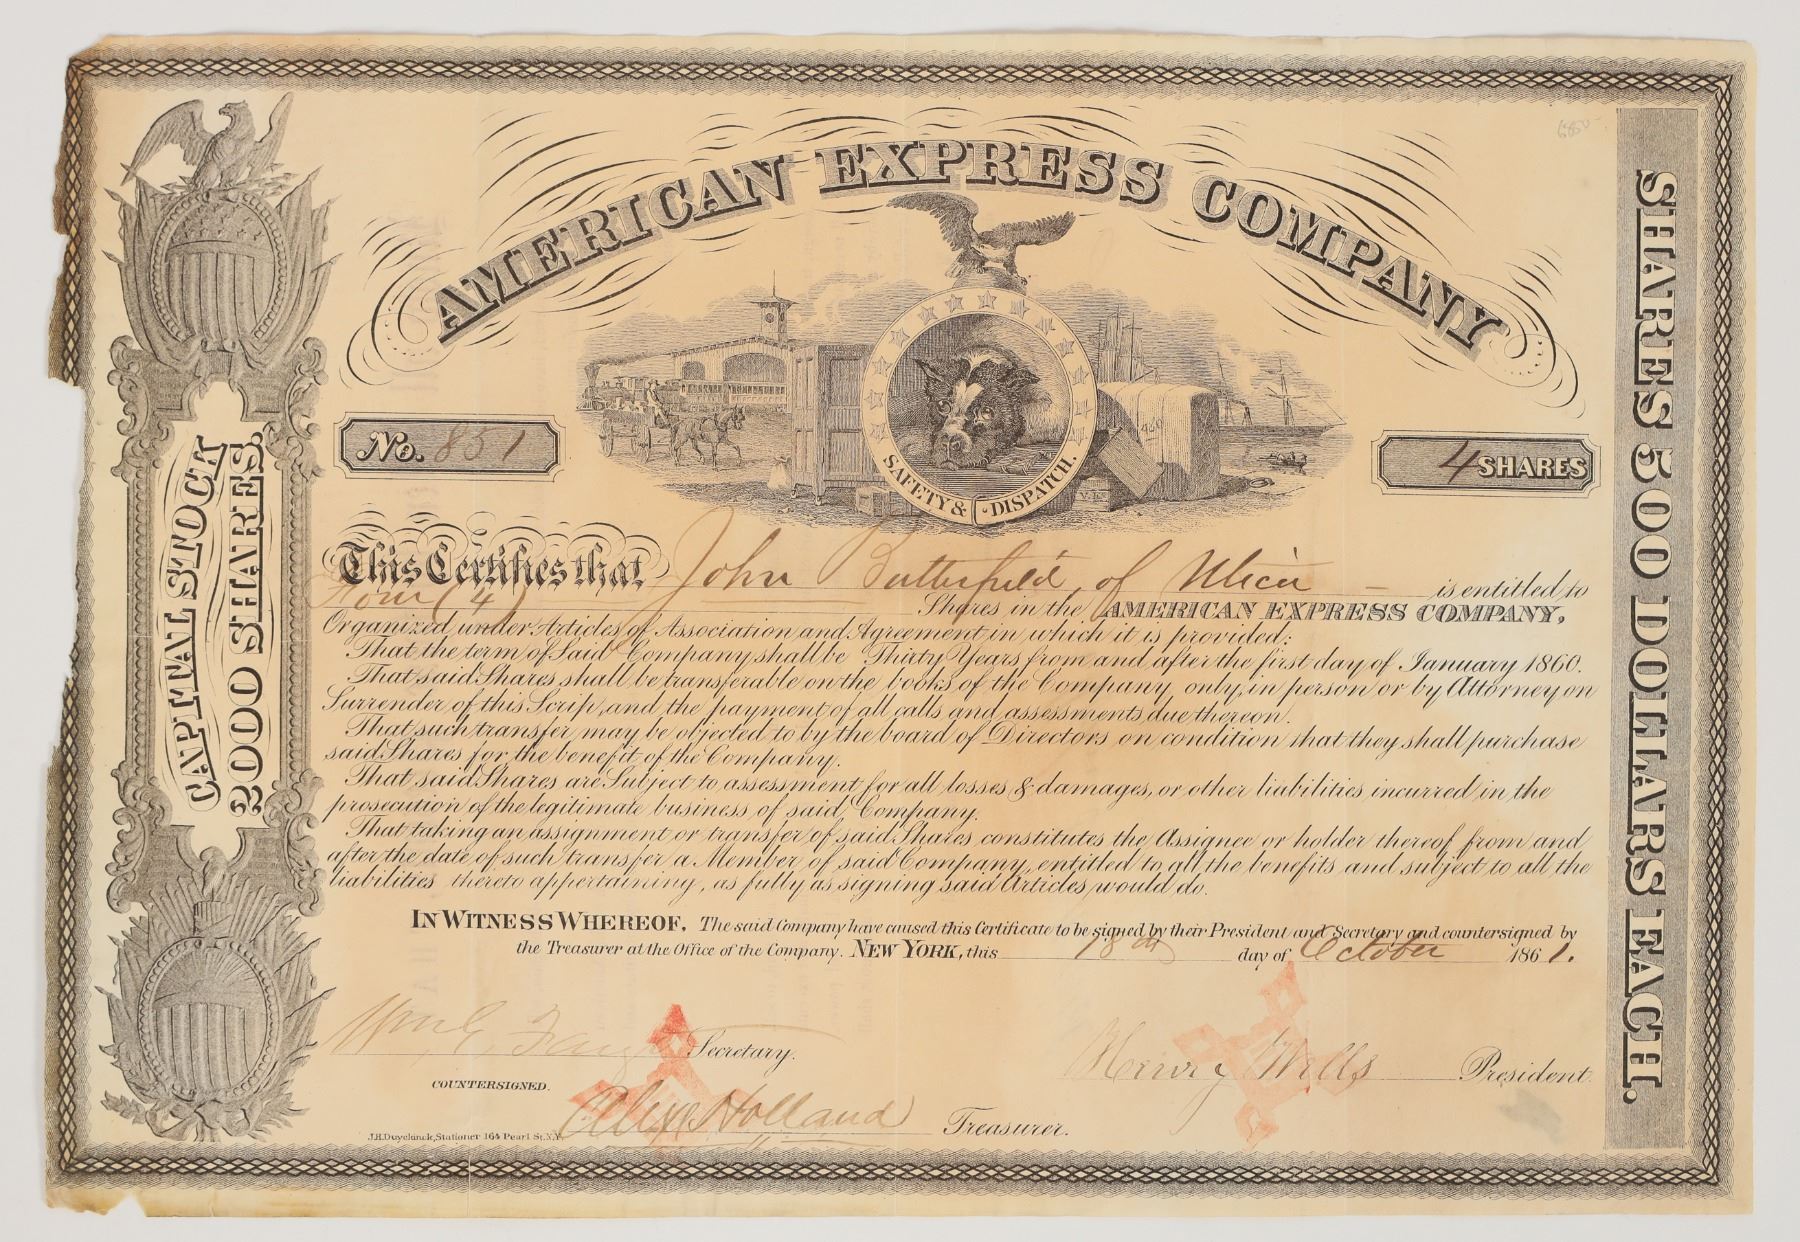 AMERICAN EXPRESS COMPANY
CAPITAL STOCK
2000 SHARES.
SHARES 500 DOLLARS EACH.
No. 851
SAFETY & DISPATCH.
460
4 SHARES
This Certifies that John Butterfield of Utica - is entitled to
Four (4) Shares in the AMERICAN EXPRESS COMPANY,
Organized under Articles of Association and Agreement in which it is provided:
That the term of Said Company shall be Thirty Years from and after the first day of January 1860.
That said Shares shall be transferable on the books of the Company, only, in person or by Attorney on
Surrender of this Scrip, and the payment of all calls and assessments due thereon.
That such transfer may be objected to by the board of Directors on condition that they shall purchase
said Shares for the benefit of the Company.
That said Shares are Subject to assessment for all losses & damages, or other liabilities incurred in the
prosecution of the legitimate business of said Company.
That taking an assignment or transfer of said Shares constitutes the Assignee or holder thereof from and
after the date of such transfer a Member of said Company, entitled to all the benefits and subject to all the
liabilities thereto appertaining, as fully as signing said Articles would do.
IN WITNESS WHEREOF. The said Company have caused this Certificate to be signed by their President and Secretary and countersigned by
the Treasurer at the Office of the Company. NEW YORK, this 18th day of October 1861.
Wm C. Fargo Secretary.
Henry Wells President
COUNTERSIGNED.
Alex Holland Treasurer.
J.H. Duyckinck, Stationer 164 Pearl St. N.Y.